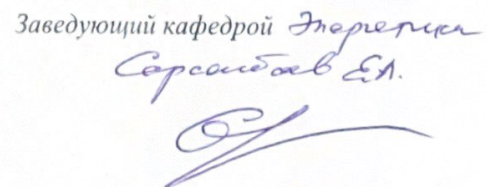 Заведующий кафедрой Энергетики
Сарсембаев Е.А.